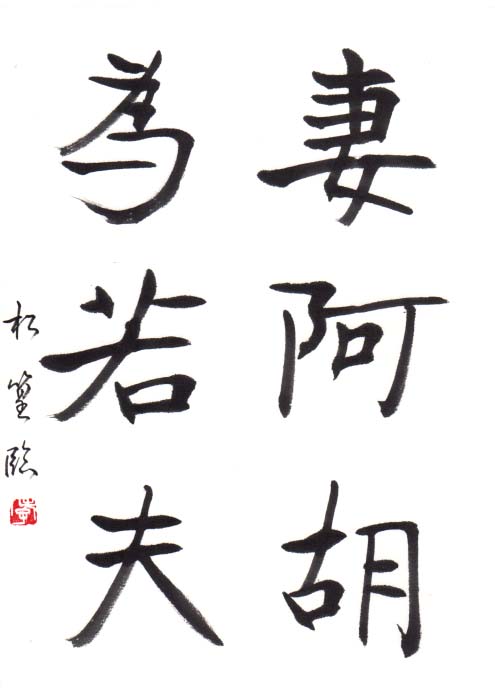 妻阿胡
為若夫
松篁臨